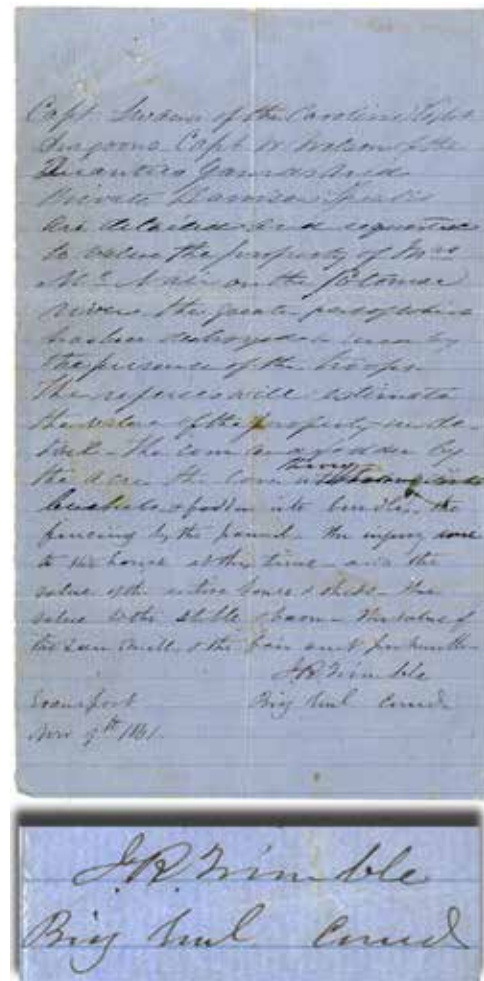 Capt. of the Carolina Light
Dragoons Capt. W. of the
Quantico Guards and
Private Harrison
are detailed and requested
to value the property of Mrs
on the Potomac
river, the greater part of which
has been destroyed by
the presence of the troops
The referees will estimate
the value of the property in de-
tail - The corn and fodder by
the acre the corn
bushels & fodder into bundles, the
fencing by the pannel - the injury done
to the house at this time - and the
value of the entire house & sheds - the
value of the stable & barn - the value of
the saw mill & the fair rent per month -
I. R. Trimble
Brig Genl Comd
Evansport
Nov 9th 1861
I. R. Trimble
Brig Genl Comd